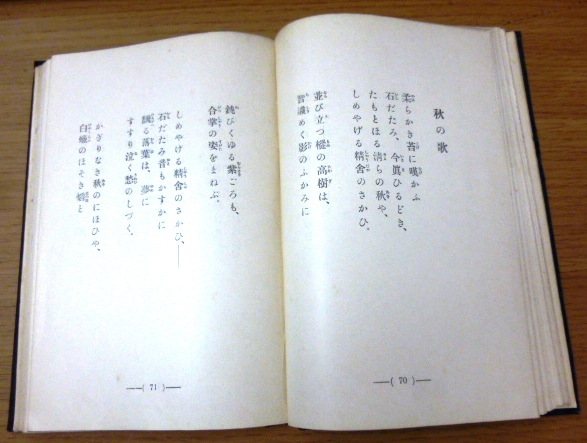 秋の歌
柔らかき苔に嘆かふ
石だたみ、今眞ひるどき、
たもとほる淸らの秋や、
しめやげる精舍のさかひ。
並び立つ樅の高樹は、
智識めく影のふかみに
鈍びくゆる紫ごろも、
合掌の姿をまねぶ。
しめやげる精舍のさかひ、――
石だたみ音もかすかに
飜る落葉は、夢に
すすり泣く愁のしづく。
かぎりなき秋のにほひや、
白蠟のほそき焰と
( 70 )
( 71 )